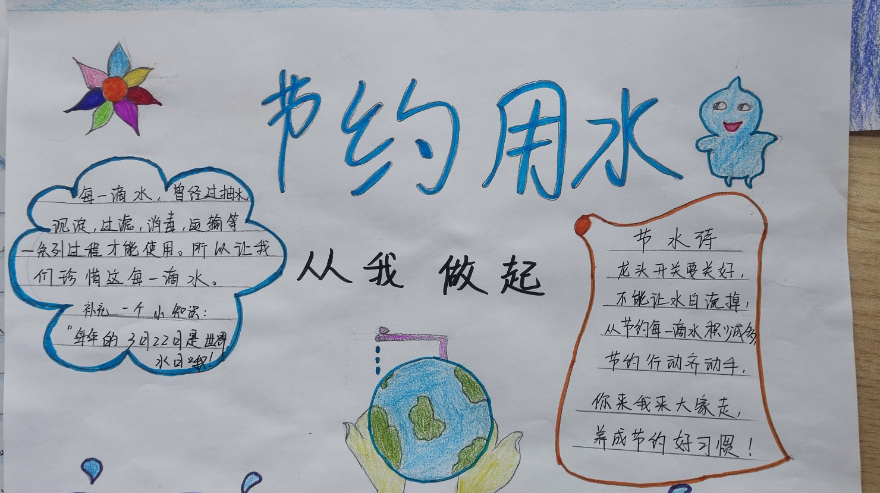 节约用水
从我做起
每一滴水，曾经过抽水
沉淀，过滤，消毒，运输等
一系列过程才能使用。所以让我
们珍惜这每一滴水。
补充一个小知识：
"每年的3月22日是世界
水日哦！
节水诗
龙头开关要关好，
不能让水自流掉，
从节约每一滴水积少成多
节约行动齐动手，
你来我来大家走，
养成节约好习惯！